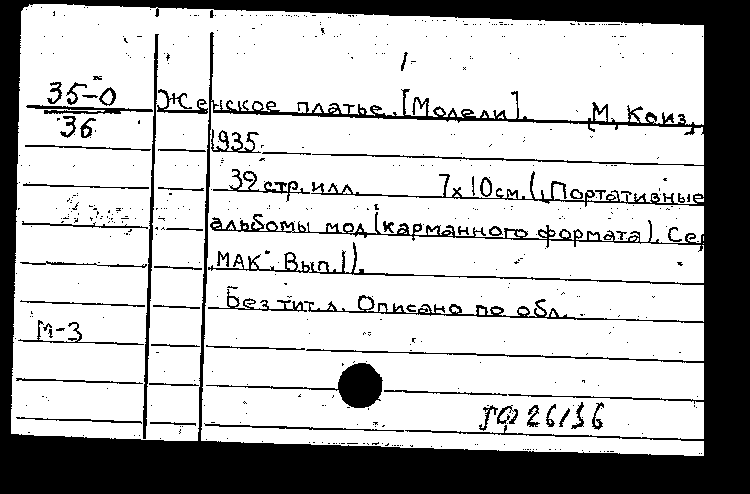 1
35-0
36
Женское платье. [Модели]. [М, Коиз],
1935.
39 стр. илл. 7х10см. („Портативные
альбомы мод (карманного формата). Сер
„МАК". Вып. 1).
Без тит. л. Описано по обл.
М-3
26/36